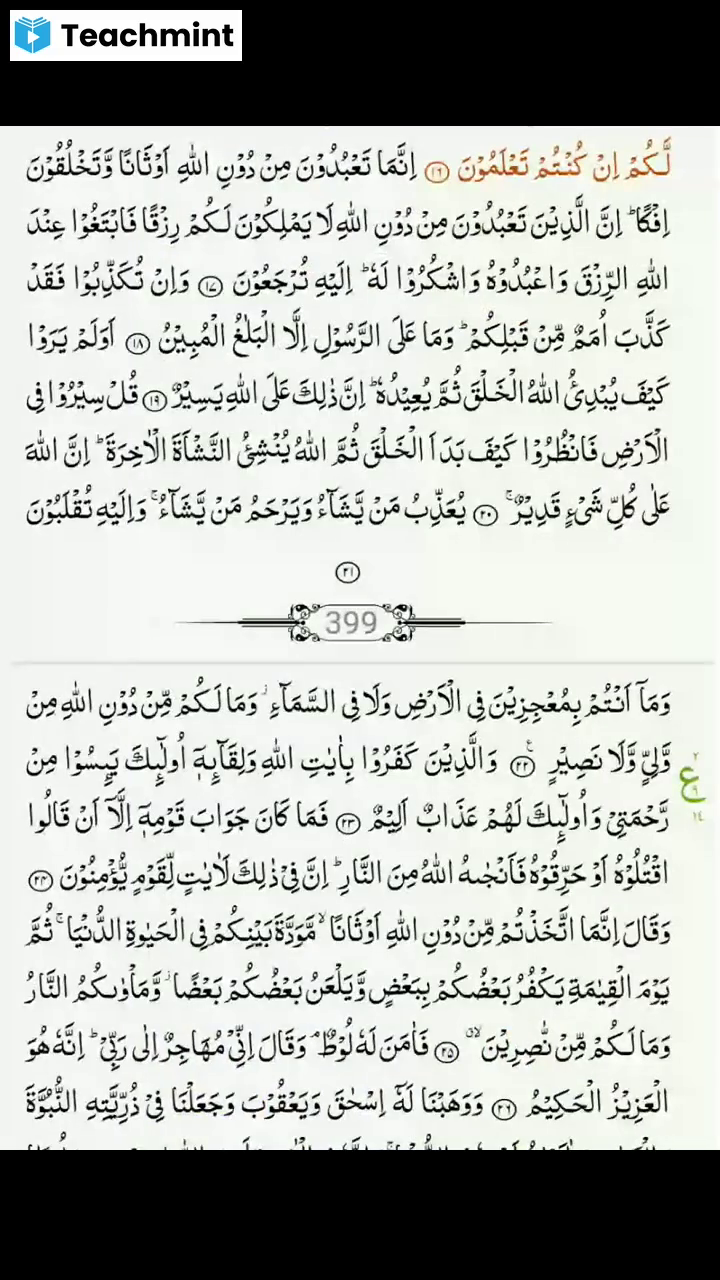 Teachmint
لَّكُمْ اِنْ كُنْتُمْ تَعْلَمُوْنَ ۝۱۶ اِنَّمَا تَعْبُدُوْنَ مِنْ دُوْنِ اللّٰهِ اَوْثَانًا وَّتَخْلُقُوْنَ
اِفْكًا ؕ اِنَّ الَّذِيْنَ تَعْبُدُوْنَ مِنْ دُوْنِ اللّٰهِ لَا يَمْلِكُوْنَ لَكُمْ رِزْقًا فَابْتَغُوْا عِنْدَ
اللّٰهِ الرِّزْقَ وَاعْبُدُوْهُ وَاشْكُرُوْا لَهٗ ؕ اِلَيْهِ تُرْجَعُوْنَ ۝۱۷ وَاِنْ تُكَذِّبُوْا فَقَدْ
كَذَّبَ اُمَمٌ مِّنْ قَبْلِكُمْ ؕ وَمَا عَلَى الرَّسُوْلِ اِلَّا الْبَلٰغُ الْمُبِيْنُ ۝۱۸ اَوَلَمْ يَرَوْا
كَيْفَ يُبْدِئُ اللّٰهُ الْخَلْقَ ثُمَّ يُعِيْدُهٗ ؕ اِنَّ ذٰلِكَ عَلَى اللّٰهِ يَسِيْرٌ ۝۱۹ قُلْ سِيْرُوْا فِى
الْاَرْضِ فَانْظُرُوْا كَيْفَ بَدَاَ الْخَلْقَ ثُمَّ اللّٰهُ يُنْشِئُ النَّشْاَةَ الْاٰخِرَةَ ؕ اِنَّ اللّٰهَ
عَلٰى كُلِّ شَىْءٍ قَدِيْرٌ ۚ ۝۲۰ يُعَذِّبُ مَنْ يَّشَآءُ وَيَرْحَمُ مَنْ يَّشَآءُ ۚ وَاِلَيْهِ تُقْلَبُوْنَ
۝۲۱
399
وَمَاۤ اَنْتُمْ بِمُعْجِزِيْنَ فِى الْاَرْضِ وَلَا فِى السَّمَآءِ ۫ وَمَا لَكُمْ مِّنْ دُوْنِ اللّٰهِ مِنْ
وَّلِىٍّ وَّلَا نَصِيْرٍ ۝۲۲ وَالَّذِيْنَ كَفَرُوْا بِاٰيٰتِ اللّٰهِ وَلِقَآئِهٖۤ اُولٰٓئِكَ يَئِسُوْا مِنْ
رَّحْمَتِىْ وَاُولٰٓئِكَ لَهُمْ عَذَابٌ اَلِيْمٌ ۝۲۳ فَمَا كَانَ جَوَابَ قَوْمِهٖۤ اِلَّاۤ اَنْ قَالُوا
اقْتُلُوْهُ اَوْ حَرِّقُوْهُ فَاَنْجٰىهُ اللّٰهُ مِنَ النَّارِ ؕ اِنَّ فِىْ ذٰلِكَ لَاٰيٰتٍ لِّقَوْمٍ يُّؤْمِنُوْنَ ۝۲۴
وَقَالَ اِنَّمَا اتَّخَذْتُمْ مِّنْ دُوْنِ اللّٰهِ اَوْثَانًا ۙ مَّوَدَّةَ بَيْنِكُمْ فِى الْحَيٰوةِ الدُّنْيَا ۚ ثُمَّ
يَوْمَ الْقِيٰمَةِ يَكْفُرُ بَعْضُكُمْ بِبَعْضٍ وَّيَلْعَنُ بَعْضُكُمْ بَعْضًا ۫ وَّمَاْوٰىكُمُ النَّارُ
وَمَا لَكُمْ مِّنْ نّٰصِرِيْنَ ۙ ۝۲۵ فَاٰمَنَ لَهٗ لُوْطٌ ۘ وَقَالَ اِنِّىْ مُهَاجِرٌ اِلٰى رَبِّىْ ؕ اِنَّهٗ هُوَ
الْعَزِيْزُ الْحَكِيْمُ ۝۲۶ وَوَهَبْنَا لَهٗۤ اِسْحٰقَ وَيَعْقُوْبَ وَجَعَلْنَا فِىْ ذُرِّيَّتِهِ النُّبُوَّةَ